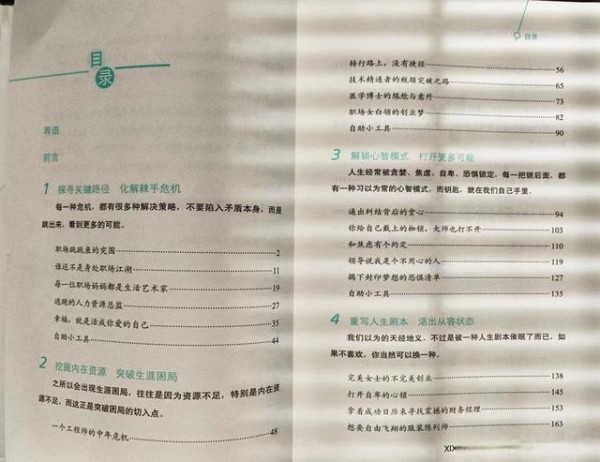 目
录
导语
前言
1 探寻关键路径 化解棘手危机
每一种危机，都有很多种解决策略，不要陷入矛盾本身，而是
跳出来，看到更多的可能。
职场跳跳鱼的突围 2
谁还不是身处职场江湖 11
每一位职场妈妈都是生活艺术家 19
逃跑的人力资源总监 27
幸福，就是活成你爱的自己 35
自助小工具 44
2 挖掘内在资源 突破生涯困局
之所以会出现生涯困局，往往是因为资源不足，特别是内在资
源不足，而这正是突破困局的切入点。
一个工程师的中年危机 48
目录
转行路上，没有捷径 56
技术精通者的瓶颈突破之路 65
医学博士的尴尬与意外 73
职场女白领的创业梦 82
自助小工具 90
3 解锁心智模式 打开更多可能
人生经常被贪婪、焦虑、自卑、恐惧锁定，每一把锁后面，都
有一种习以为常的心智模式，而钥匙，就在我们自己手里。
逼出纠结背后的贪心 94
你给自己戴上的枷锁，大师也打不开 103
和焦虑有个约定 110
领导说我是个不用心的人 119
揭下封印梦想的恐惧清单 127
自助小工具 135
4 重写人生剧本 活出从容状态
我们以为的天经地义，不过是被一种人生剧本催眠了而已，如
果不喜欢，你当然可以换一种。
完美女士的不完美创业 138
打开自卑的心锁 145
拿着成功日历来寻找震撼的财务经理 153
想要自由飞翔的服装陈列师 163